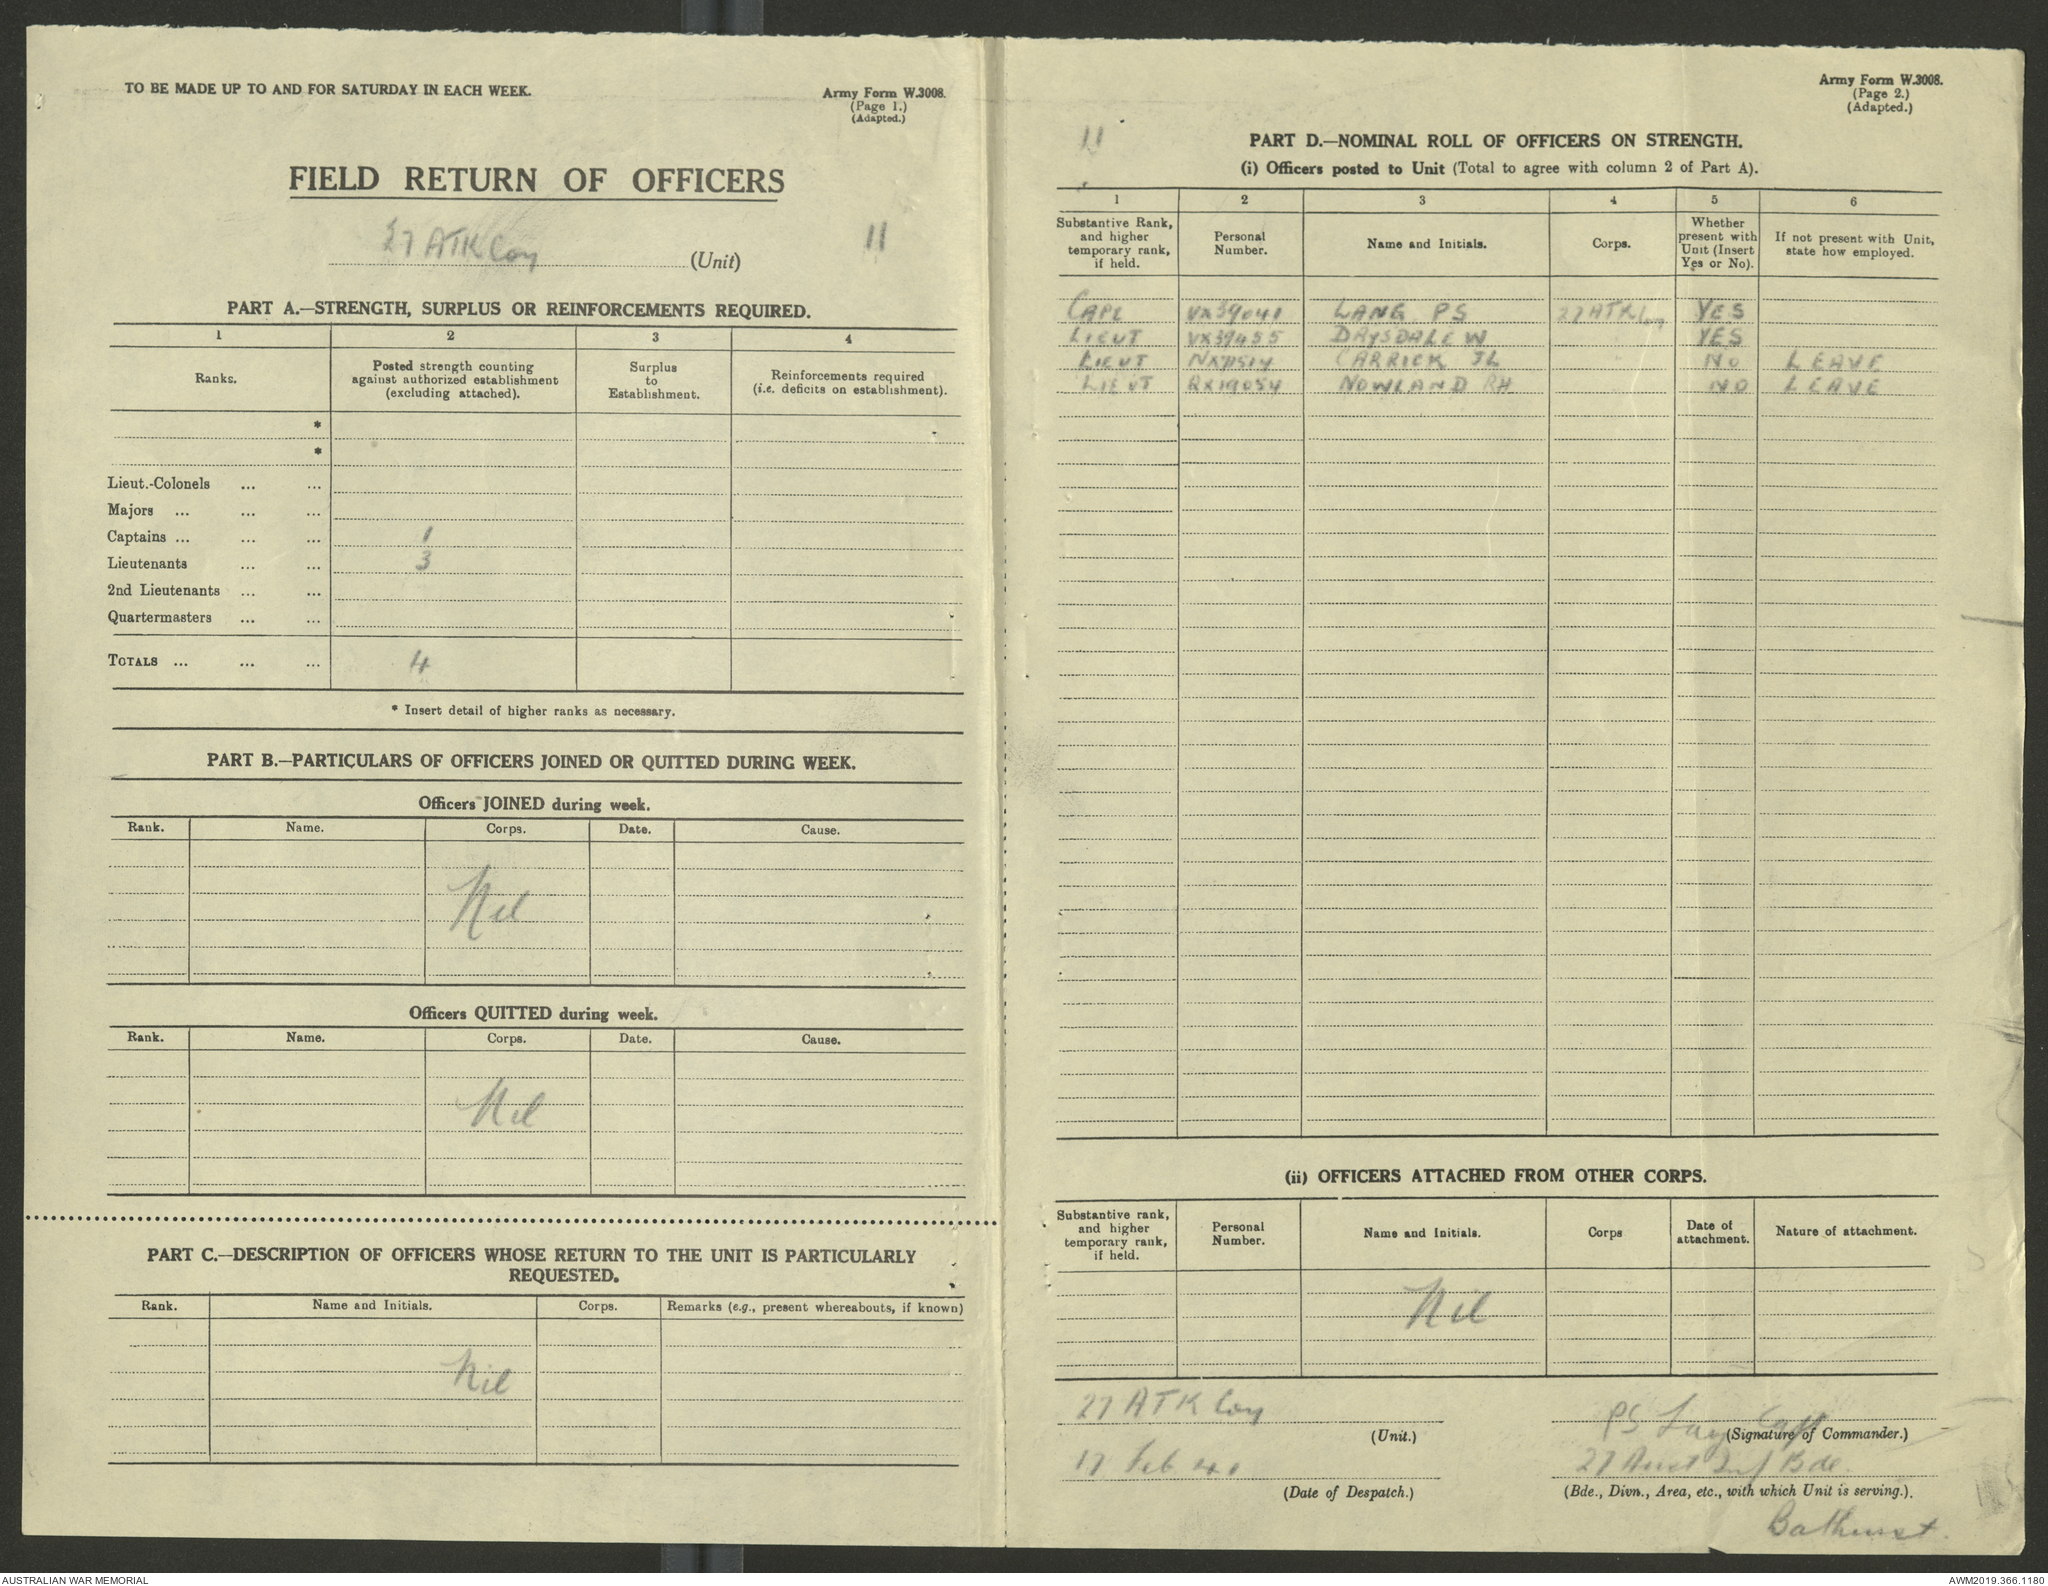 TO BE MADE UP TO AND FOR SATURDAY IN EACH WEEK.
Army Form W.3008.
(Page 1.)
(Adapted.)
FIELD RETURN OF OFFICERS
27 ATK Coy (Unit) 11
PART A.—STRENGTH, SURPLUS OR REINFORCEMENTS REQUIRED.
1 2 3 4
Ranks. Posted strength counting against authorized establishment (excluding attached). Surplus to Establishment. Reinforcements required (i.e. deficits on establishment).
*
*
Lieut.-Colonels ... ...
Majors ... ... ...
Captains ... ... ... 1
Lieutenants ... ... 3
2nd Lieutenants ... ...
Quartermasters ... ...
TOTALS ... ... ... 4
* Insert detail of higher ranks as necessary.
PART B.—PARTICULARS OF OFFICERS JOINED OR QUITTED DURING WEEK.
Officers JOINED during week.
Rank. Name. Corps. Date. Cause.
Nil
Officers QUITTED during week.
Rank. Name. Corps. Date. Cause.
Nil
PART C.—DESCRIPTION OF OFFICERS WHOSE RETURN TO THE UNIT IS PARTICULARLY
REQUESTED.
Rank. Name and Initials. Corps. Remarks (e.g., present whereabouts, if known)
Nil
Army Form W.3008.
(Page 2.)
(Adapted.)
11
PART D.—NOMINAL ROLL OF OFFICERS ON STRENGTH.
(i) Officers posted to Unit (Total to agree with column 2 of Part A).
1 2 3 4 5 6
Substantive Rank, and higher temporary rank, if held. Personal Number. Name and Initials. Corps. Whether present with Unit (Insert Yes or No). If not present with Unit, state how employed.
CAPT VX39041 LANG PS 27 ATK Coy YES
LIEUT VX39455 DRYSDALE W YES
LIEUT CARRICK JL NO LEAVE
LIEUT QX19054 NOWLAND RH NO LEAVE
(ii) OFFICERS ATTACHED FROM OTHER CORPS.
Substantive rank, and higher temporary rank, if held. Personal Number. Name and Initials. Corps Date of attachment. Nature of attachment.
Nil
27 ATK Coy
(Unit.)
PS Lang Capt
(Signature of Commander.)
17 Feb
(Date of Despatch.)
27 Aust Inf Bde.
(Bde., Divn., Area, etc., with which Unit is serving.).
Bathurst.
AUSTRALIAN WAR MEMORIAL
AWM2019.366.1180